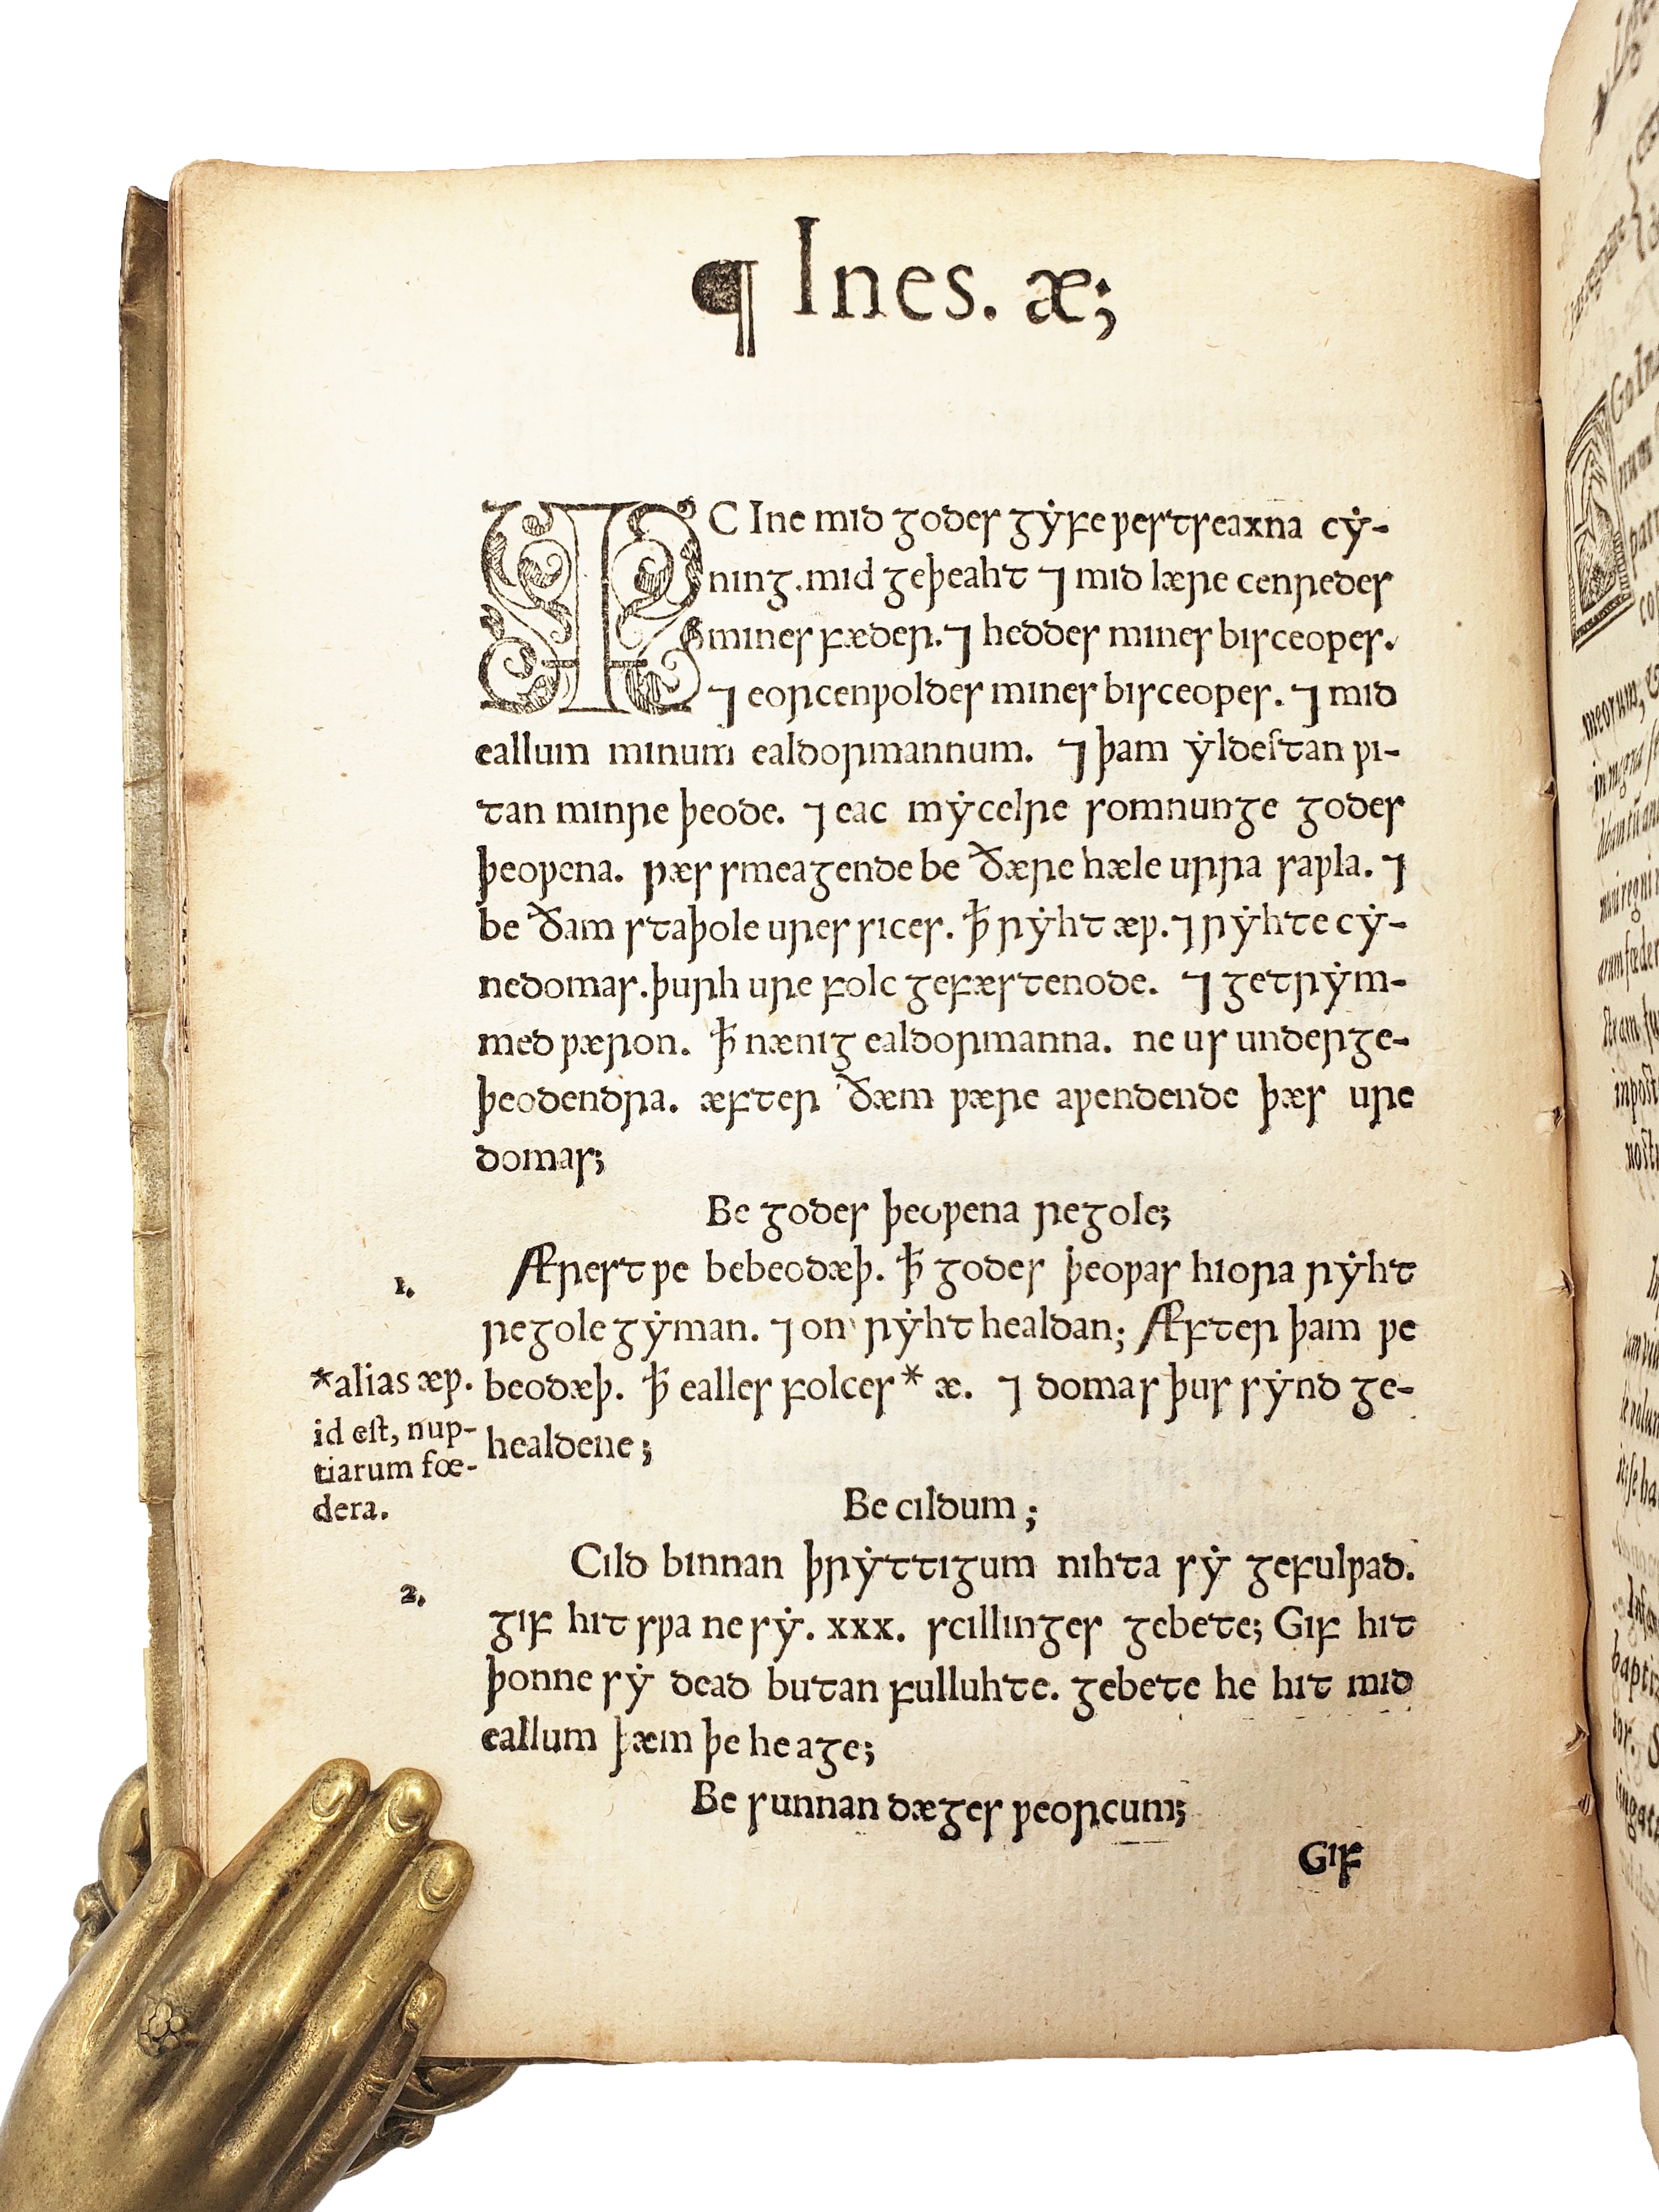 ¶ Ines. æ;
IC Ine mid godes gẏfe ƿestseaxna cẏ-
ning. mid geþeaht ⁊ mid lære cenredes
mines fæder. ⁊ heddes mines bisceopes.
⁊ eorcenƿoldes mines bisceopes. ⁊ mid
eallum minum ealdormannum. ⁊ þam ẏldestan ƿi-
tan minre þeode. ⁊ eac mẏcelre somnunge godes
þeoƿena. ƿæs smeagende be ðære hæle urra saƿla. ⁊
be ðam staþole ures rices. ꝥ rẏht æƿ. ⁊ rẏhte cẏ-
nedomas. þurh ure folc gefæstenode. ⁊ getrẏm-
med ƿæron. ꝥ nænig ealdormanna. ne us underge-
þeodendra. æfter ðæm ƿære aƿendende þæs ure
domas;
Be godes þeoƿena regole;
1.
Ærest ƿe bebeodæþ. ꝥ godes þeoƿas hiora rẏht
regole gẏman. ⁊ on rẏht healdan; Æfter þam ƿe
beodæþ. ꝥ ealles folces* æ. ⁊ domas þus sẏnd ge-
healdene;
*alias æƿ.
id est, nup-
tiarum fœ-
dera.
Be cildum;
2.
Cild binnan þrẏttigum nihta sẏ gefulƿad.
gif hit sƿa ne sẏ. xxx. scillinges gebete; Gif hit
þonne sẏ dead butan fulluhte. gebete he hit mid
eallum þæm þe he age;
Be sunnan dæges ƿeorcum;
Gif